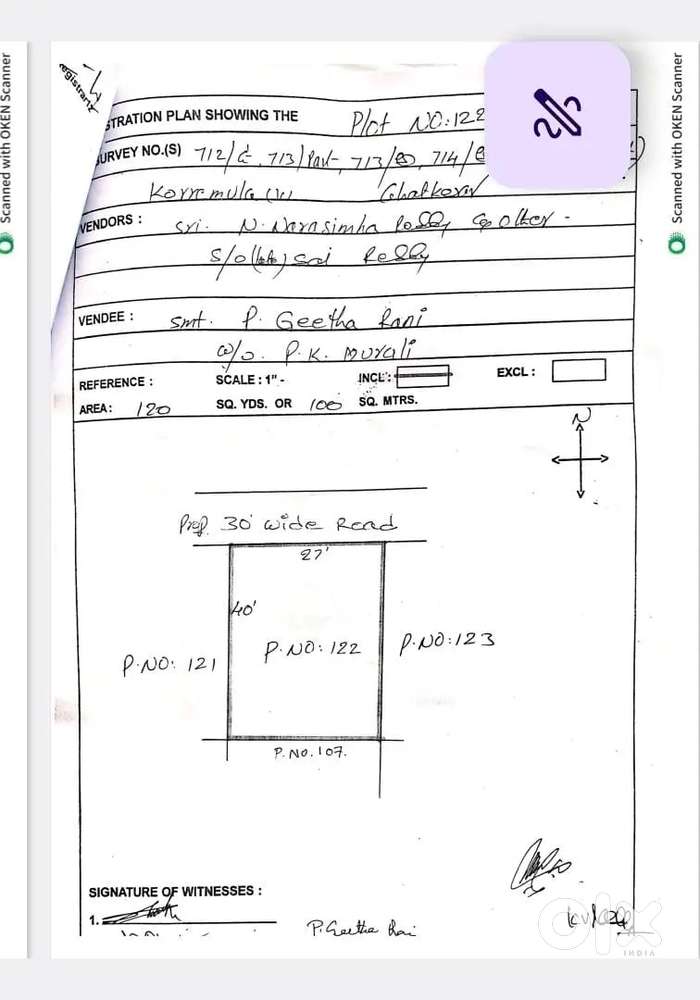 Scanned with OKEN Scanner
Scanned with OKEN Scanner
egistrant
STRATION PLAN SHOWING THE Plot NO:122
SURVEY NO.(S) 712/ , 713/Part, 713/ , 714/
Korremula (V) Ghatkesar
VENDORS : Sri. N. Narasimha Reddy & other -
S/o (late) Sai Reddy
VENDEE : Smt. P. Geetha Rani
W/o. P. K. Murali
REFERENCE : SCALE : 1" - INCL : EXCL :
AREA : 120 SQ. YDS. OR 100 SQ. MTRS.
N
Prop. 30' wide Road
27'
40'
P.NO: 121 P.NO: 122 P.NO: 123
P.NO. 107.
SIGNATURE OF WITNESSES :
1.
P. Geetha Rani
olx
INDIA